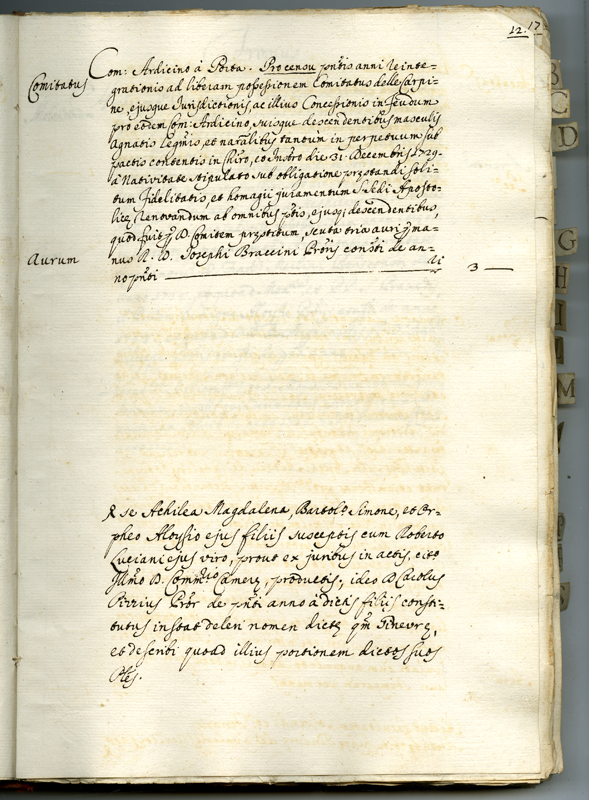 12. 17
Com: Ardicino à Porta. Pro censu pntis anni reinte=
Comitatus
grationis ad liberam possessionem Comitatus delle Carpi=
ne, ejusque Jurisdictionis, ac illius Concessionis in feudum
pro eodem Com: Ardicino, suisque descendentibus masculis
Agnatis legnis, et naralibus tantum in perpetuum sub
pactis contentis in Chiro, eo Instro die 31. Decembris 1729.
à Nativitate stipulato sub obligatione prestandi soli=
tum fidelitatis, et homagii juramentum S. Sedi Aposto=
licę renovandum ab omnibus ejusq; descendentibus,
quod fuit p. D. Comitem pręstitum, scuta tria auri p ma=
Aurum
nus R. D. Josephi Braccini Prōris constit de an=
no pnti — 3 —
R se Achilea Magdalena, Bertold. Simone, et Or=
pheo Aloysio ejus filiis susceptis cum Roberto
Luciani ejus viro, prout ex juribus in actis, cito
Illmo D. Commrio Camerę, productis; ideo D. Carolus
Pizzius Prōr de pnti anno à dictis filiis consti=
tutus instat deleri nomen dictę qm Ginevrę,
et describi quoad illius portionem dictos suos
B
C
D
G
H
I
M